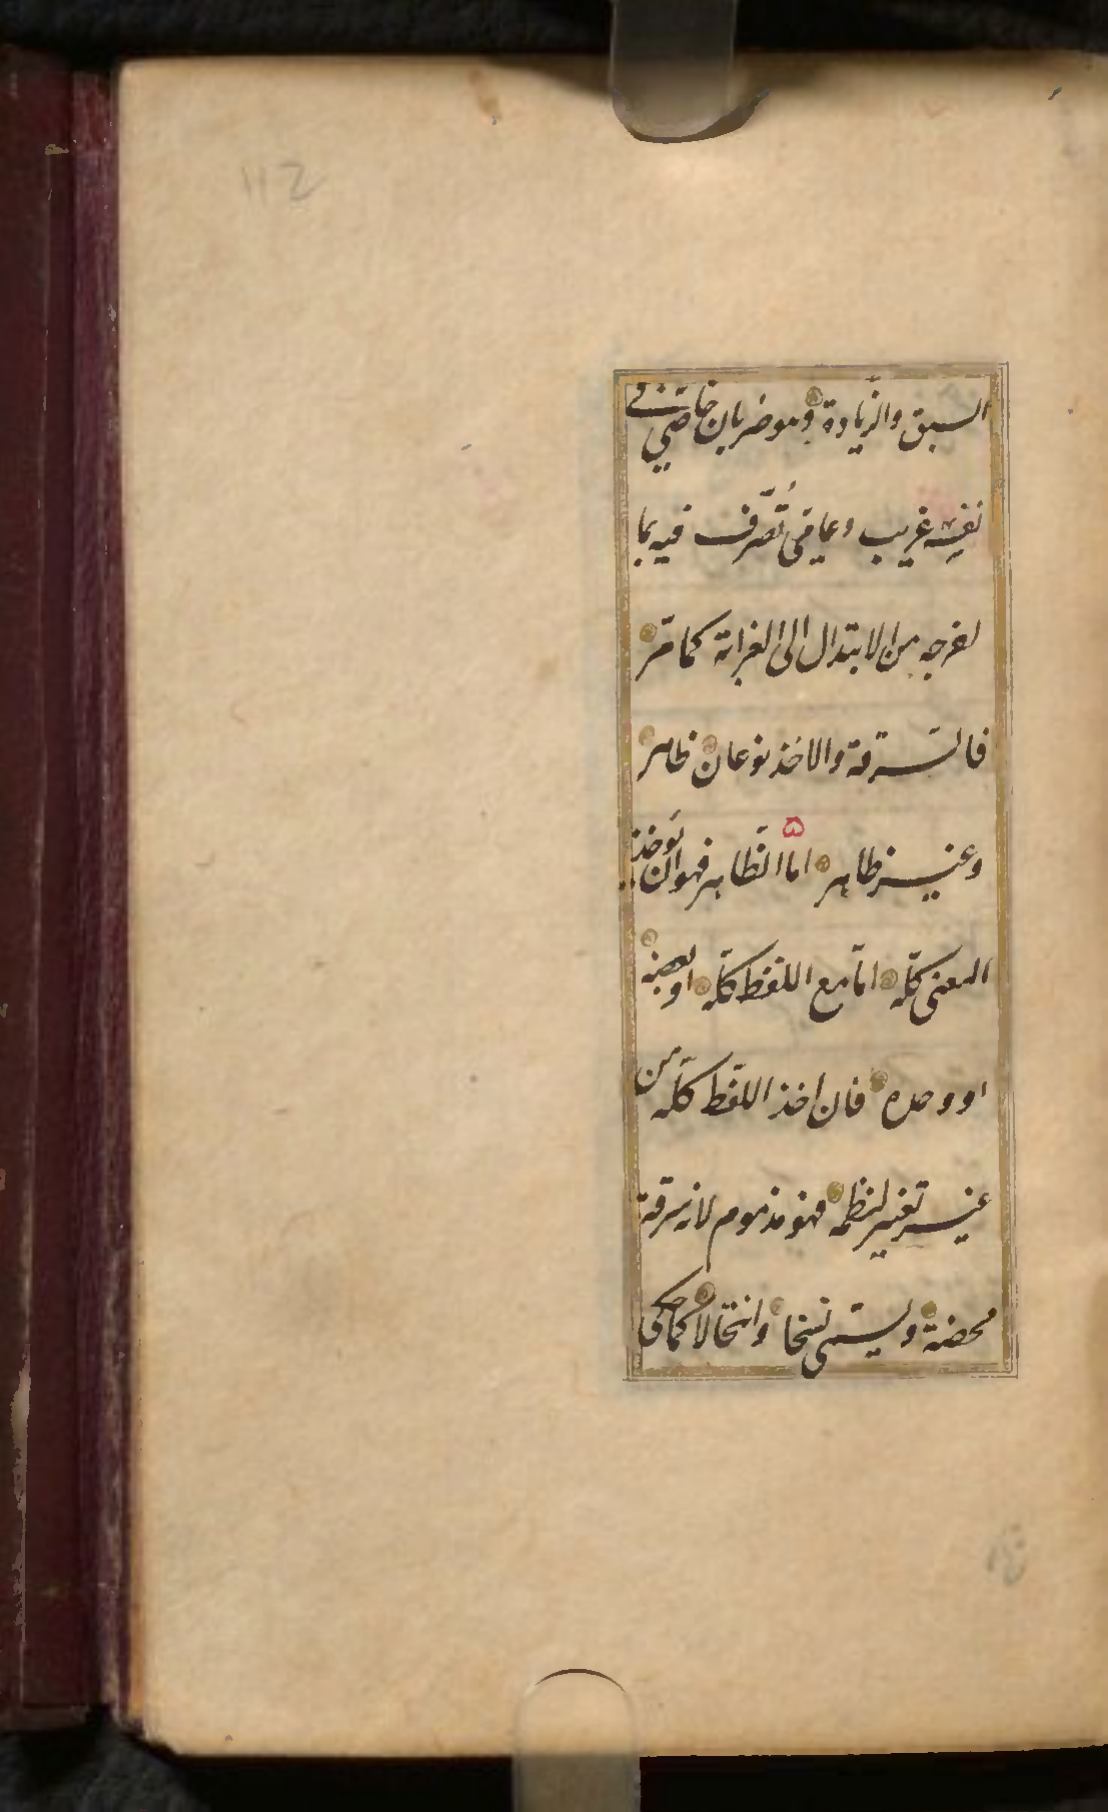 112
السبق والزّيادة وهو ضربان خاصّي في
نفسه غريب وعامّي تُصّرف فيه بما
اخرجه من الابتذال الى الغرابة كما مرّ
فالسّرقة والاخذ نوعان ظاهر
وغير ظاهر امّا الظّاهر فهو ان يَوخذ
المعنى كلّه امّا مع اللفظ كلّه او بعضه
او وحده فان اخذ اللفظ كلّه من
غير تغيير لنظمه فهو مذموم لانه سرقة
محضة ويسمّى نسخا وانتحالا كما حكى